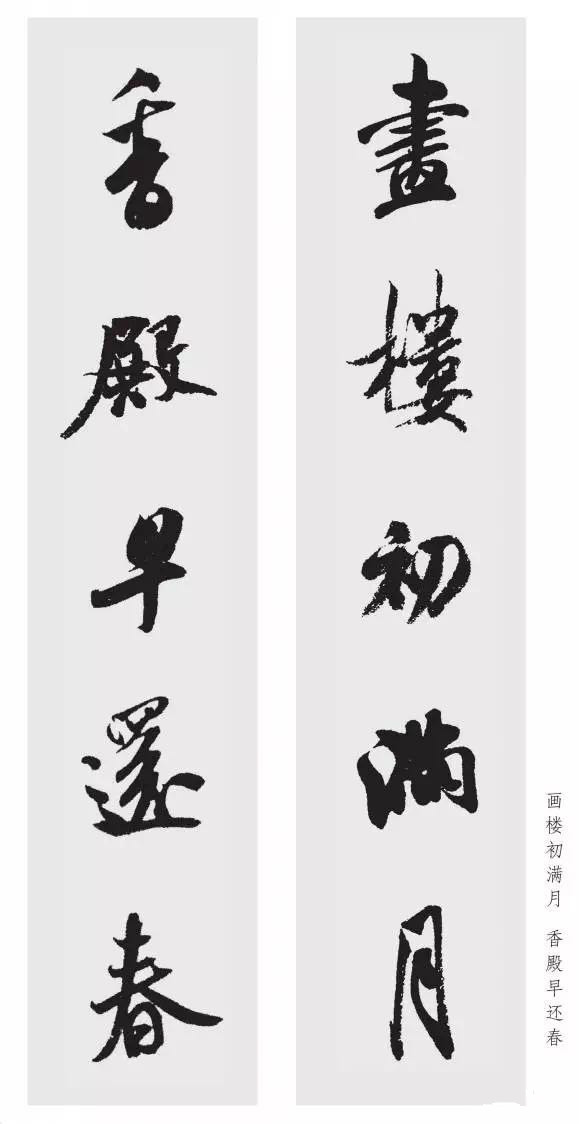 畫樓初滿月
香殿早還春
画楼初满月 香殿早还春